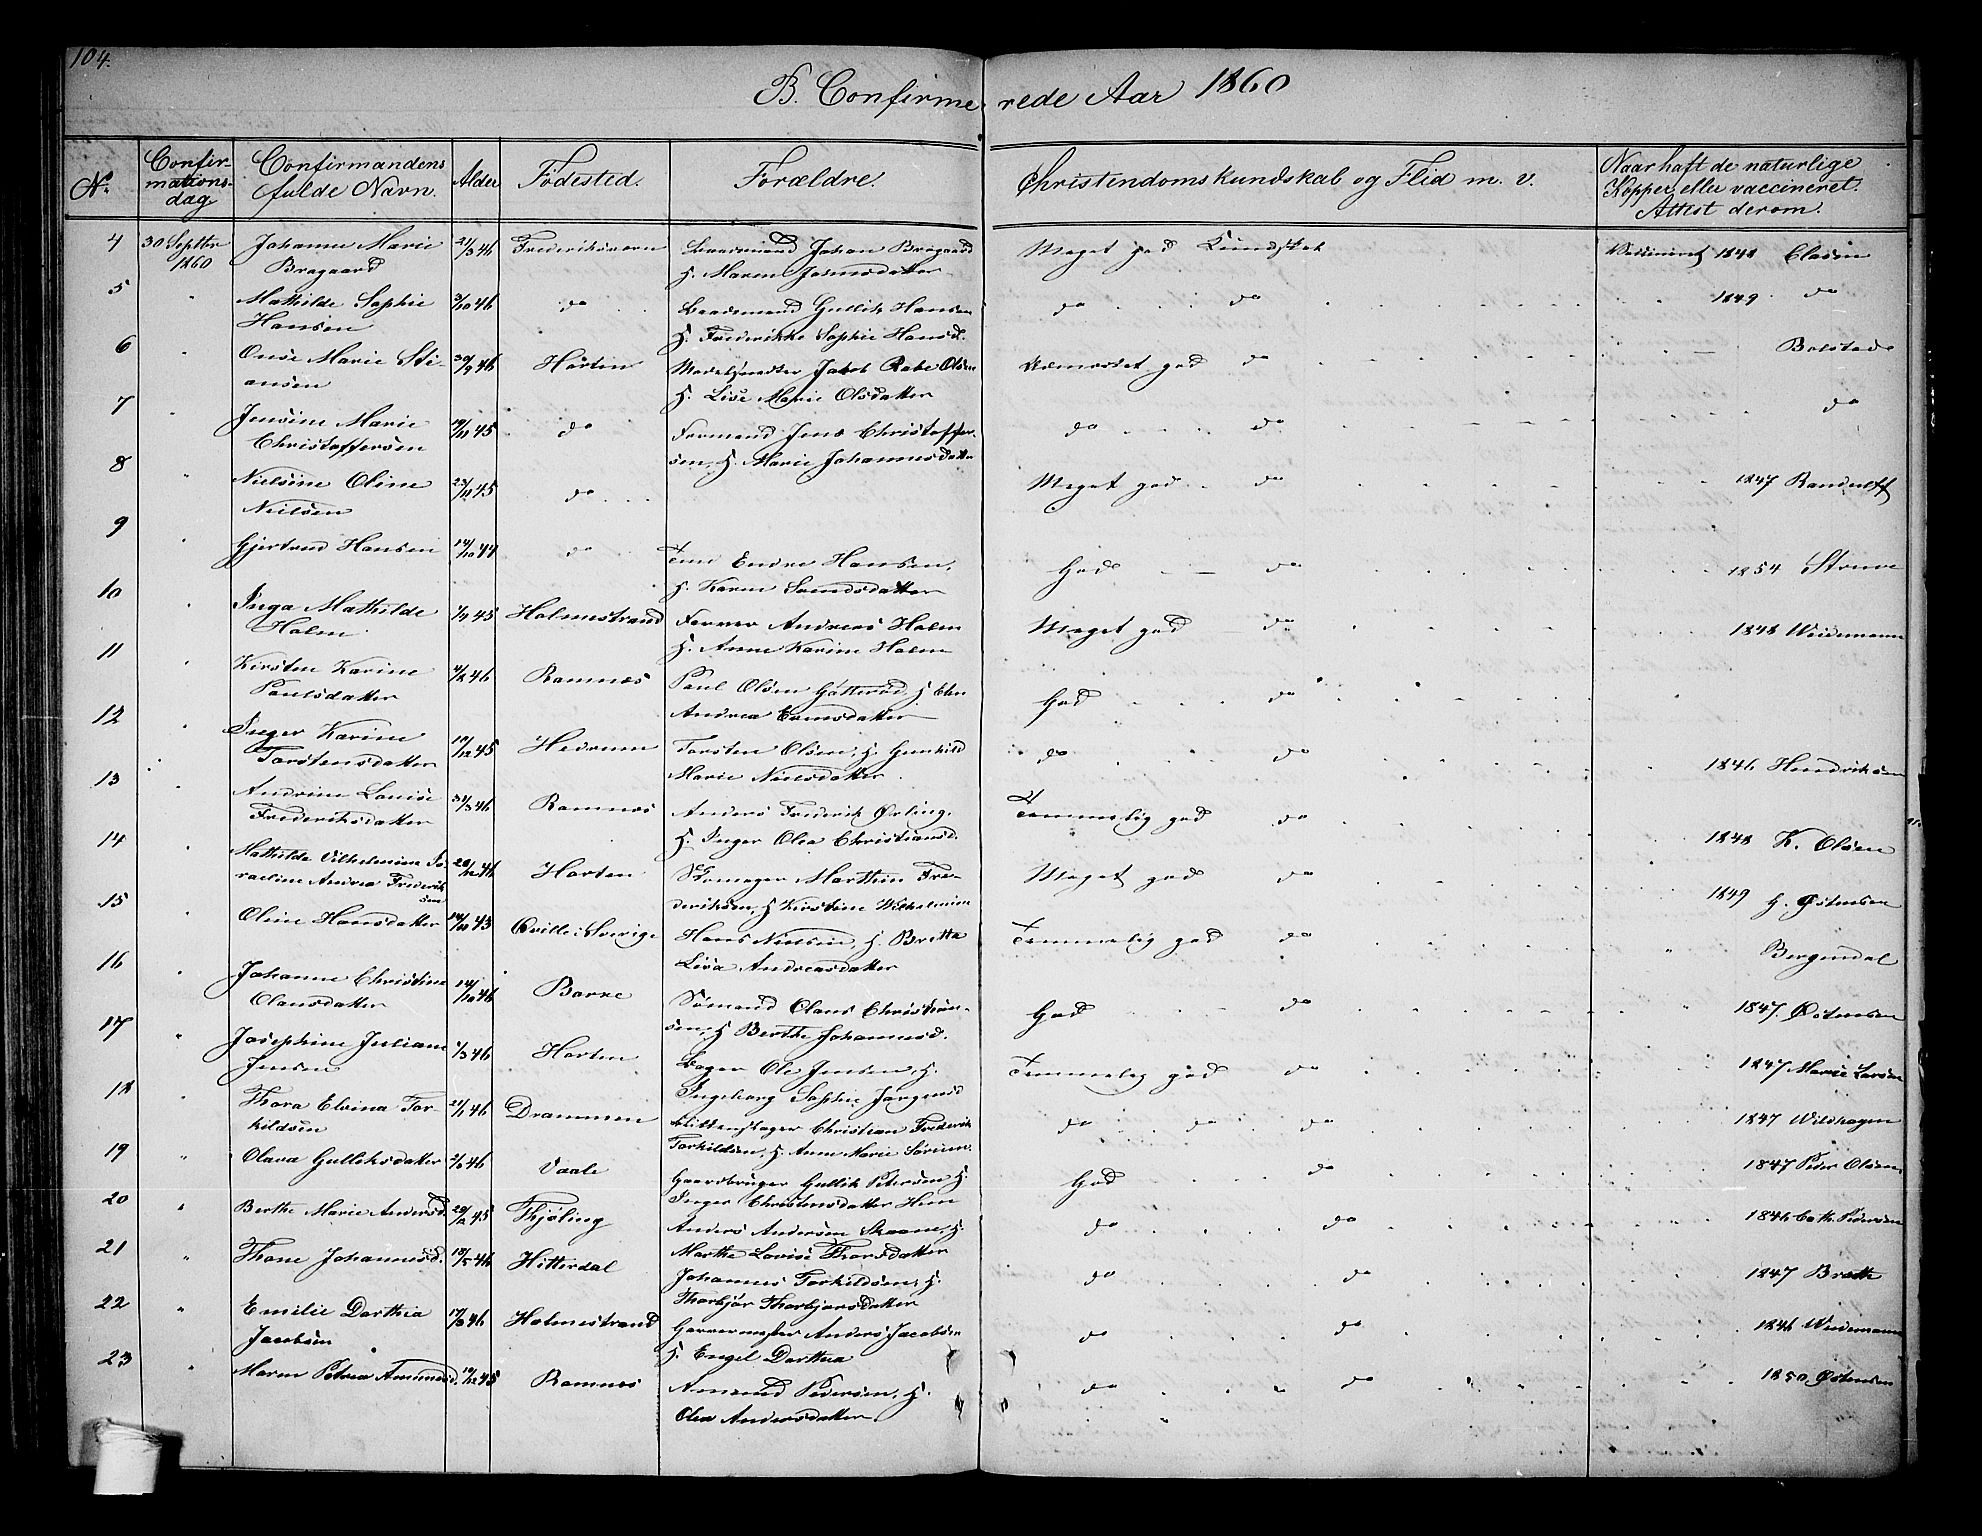 104.
B. Confirmerede Aar 1860
No
Confirmations-dag
Confirmandens fulde Navn.
Alder
Fødested.
Forældre.
Christendomskundskab og Flid m. v.
Naar haft de naturlige Kopper, eller vaccineret. Attest derom.
4 30 Septbr 1860 Johanne Marie Bragaard 21/3 46 Frederiksværn Baadsmand Johan Bragaard
H. Maren Jensdatter Meget god Kundskab Vaccineret 1848 Clasen
5 " Mathilde Sophie Hansen 3/10 46 do Baadsmand Gullik Hansen
H. Frederikke Sophie Hansd. do do 1849 do
6 " Marie Stiansen 30/9 46 Horten Jakob Rabe Olsen
H. Lise Marie Olsdatter god do Bolstad
7 " Jensine Marie Christoffersen 19/11 45 do Formand Jens Christoffersen,
H. Marie Johannesdatter do do do
8 " Nielsine Oline Nielsen 23/11 45 do Meget god do 1847
9 " Gjertrud Hansen 14/10 44 do Endre Hansen,
H. Karen Svendsdatter God do 1854 Struve
10 " Inga Mathilde Holm 1/9 45 Holmestrand Farver Andreas Holm
H. Anne Karine Holm Meget god do 1848 Weidemann
11 " Kirsten Karine Paulsdatter 4/2 46 Ramnæs Paul Olsen H. Elen
Andrea God do
12 " Inger Karine Torstensdatter 19/12 45 Hedrum Torsten Olsen, H. Gunhild
Marie Nielsdatter do do 1846 Hendriksen
13 " Andrine Lovise Frederiksdatter 31/3 46 Ramnæs Anders Frederik Ørling,
H. Inger Olea Christiansd. Temmelig god do 1848 K. Olsen
14 " Mathilde Vilhelmine Andrea Frederiksen 28/12 46 Horten Skomager Marthin Frederiksen,
H. Kirstine Wilhelmine Meget god do 1849 H. Østensen
15 " Oline Hansdatter 14/11 43 Qville i Sverige Hans Nielsen, H. Britta
Lisa Andreasdatter Temmelig god do Bergendal
16 " Johanne Christine Olausdatter 14/10 46 Borre Sømand Olaus Christiansen,
H. Berthe Johannesd. God do 1847 Østensen
17 " Josephine Juliane Jensen 1/3 46 Horten Bager Ole Jensen, H.
Ingeborg Sophie Jørgensd Temmelig god do 1847 Marie Larsen
18 " Thora Elvina Torkildsen 21/1 46 Drammen Christian Frederik
Torkildsen, H. Anne Marie do do do 1847 Wildhagen
19 " Olava Gulliksdatter 46 Vaale Gaardbruger Gullik Petersen H.
Inger Christensdatter God do 1847 Peder Olsen
20 " Berthe Marie Andersd. 20/2 45 Thjøling Anders Andersen H.
Marthe Lovise Thorsdatter do do 1846 Cath. Pedersen
21 " Thone Johannesd. 18/5 46 Hitterdal Johannes Torkildsen, H.
Thorbjør Thorbjørsdatter do do 1847 Bratte
22 " Emilie Dorthia Jacobsen 17/8 46 Holmestrand Garvermester Anders Jacobsen
H. Engel Dorthea do do 1846 Wiedemann
23 " Maren Petrea Amundsd. 19/12 45 Ramnæs Amund Pedersen, H.
Olea Andersdatter do do 1850 Østensen